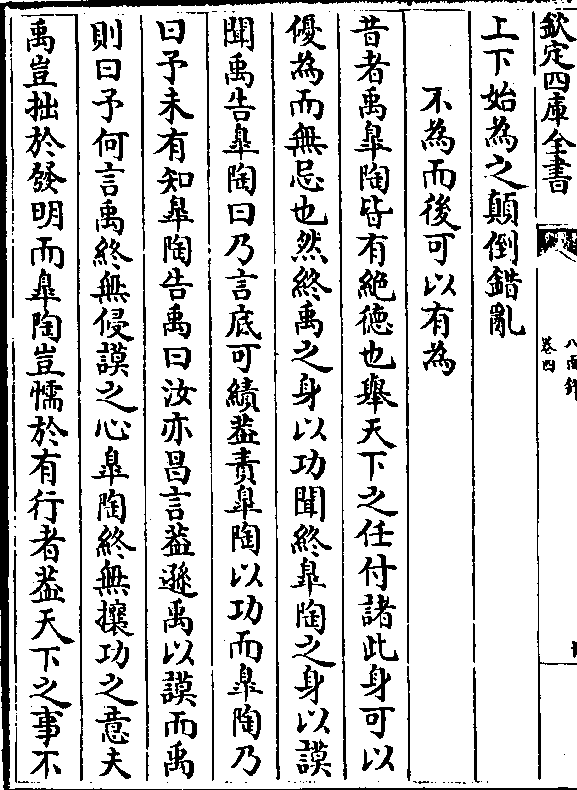 欽定四庫全書
八面鋒
卷四
上下始為之顛倒錯亂
不為而後可以有為
昔者禹臯陶皆有絶徳也舉天下之任付諸此身可以
優為而無忌也然終禹之身以功聞終臯陶之身以謨
聞禹告臯陶曰乃言底可績葢責臯陶以功而臯陶乃
曰予未有知臯陶告禹曰汝亦昌言葢遜禹以謨而禹
則曰予何言禹終無侵謨之心臯陶終無攘功之意夫
禹豈拙於發明而臯陶豈懦於有行者葢天下之事不